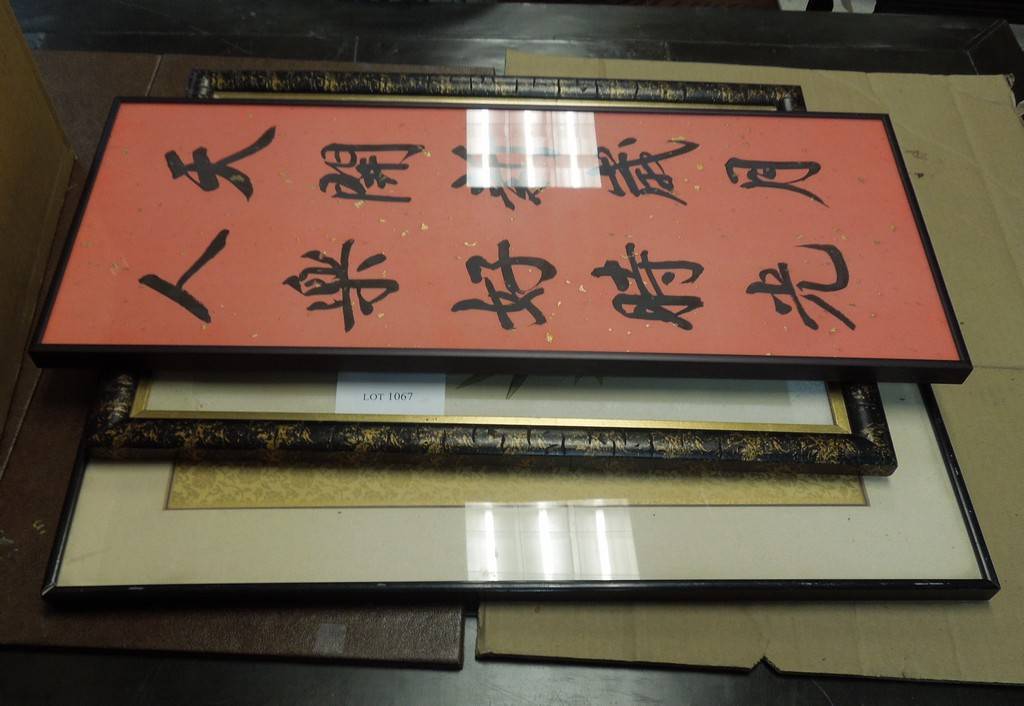 天開新歲月
人樂好時光
LOT 1067